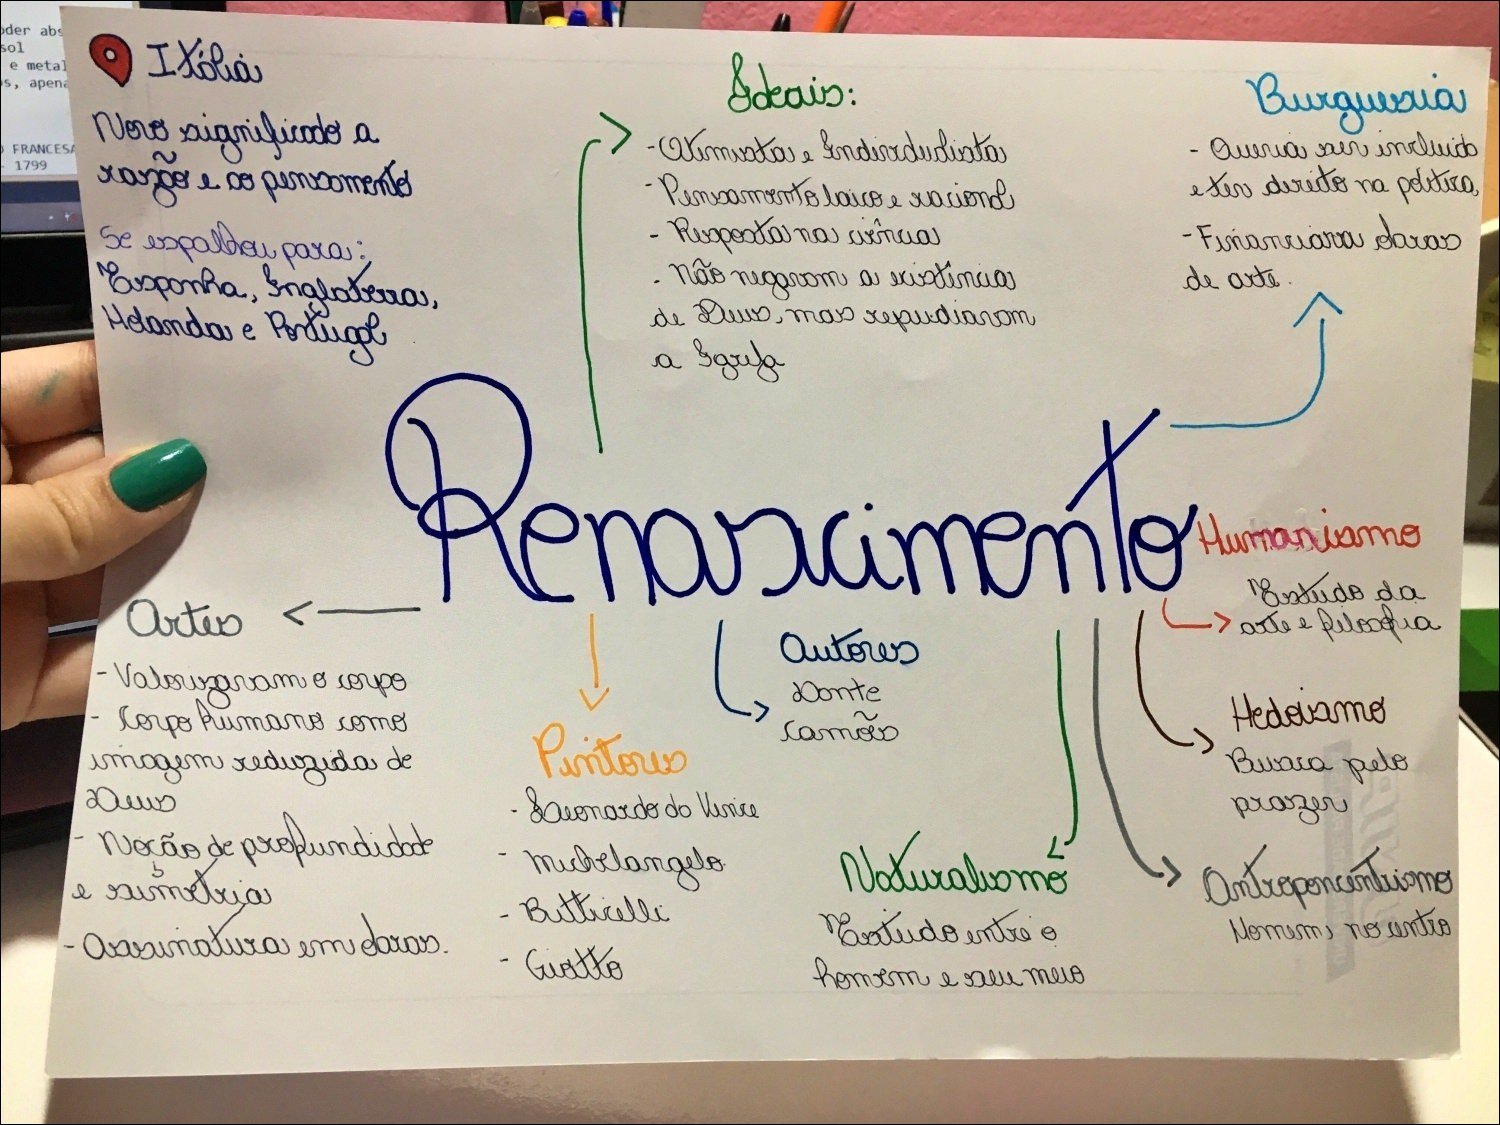 oder abs
sol
e metal
os, apena
O FRANCESA
- 1799
Itália
Novo significado a
razão e ao pensamento
Se espalhou para:
Espanha, Inglaterra,
Holanda e Portugal
Ideais:
- Otimista e Individualista
- Pensamento laico e racional
- Resposta na ciência
- Não negaram a existência
de Deus, mas repudiaram
a Igreja
Burguesia
- Queria ser incluida
e ter direito na politica,
- Financiava obras
de arte.
Renascimento
Humanismo
Estudo da
arte e filosofia
Hedoismo
Busca pelo
prazer
Antroponcentrismo
Homem no entro
Artes
- Valorizavam o corpo
- Corpo humano como
imagem reduzida de
Deus
- Noção de profundidade
e simetria
- Assinatura em obras.
Pintores
- Leonardo do Vince
- Michelangelo
- Botticelli
- Giotto
Autores
Dante
Camões
Naturalismo
Estudo entre o
homem e seu meio